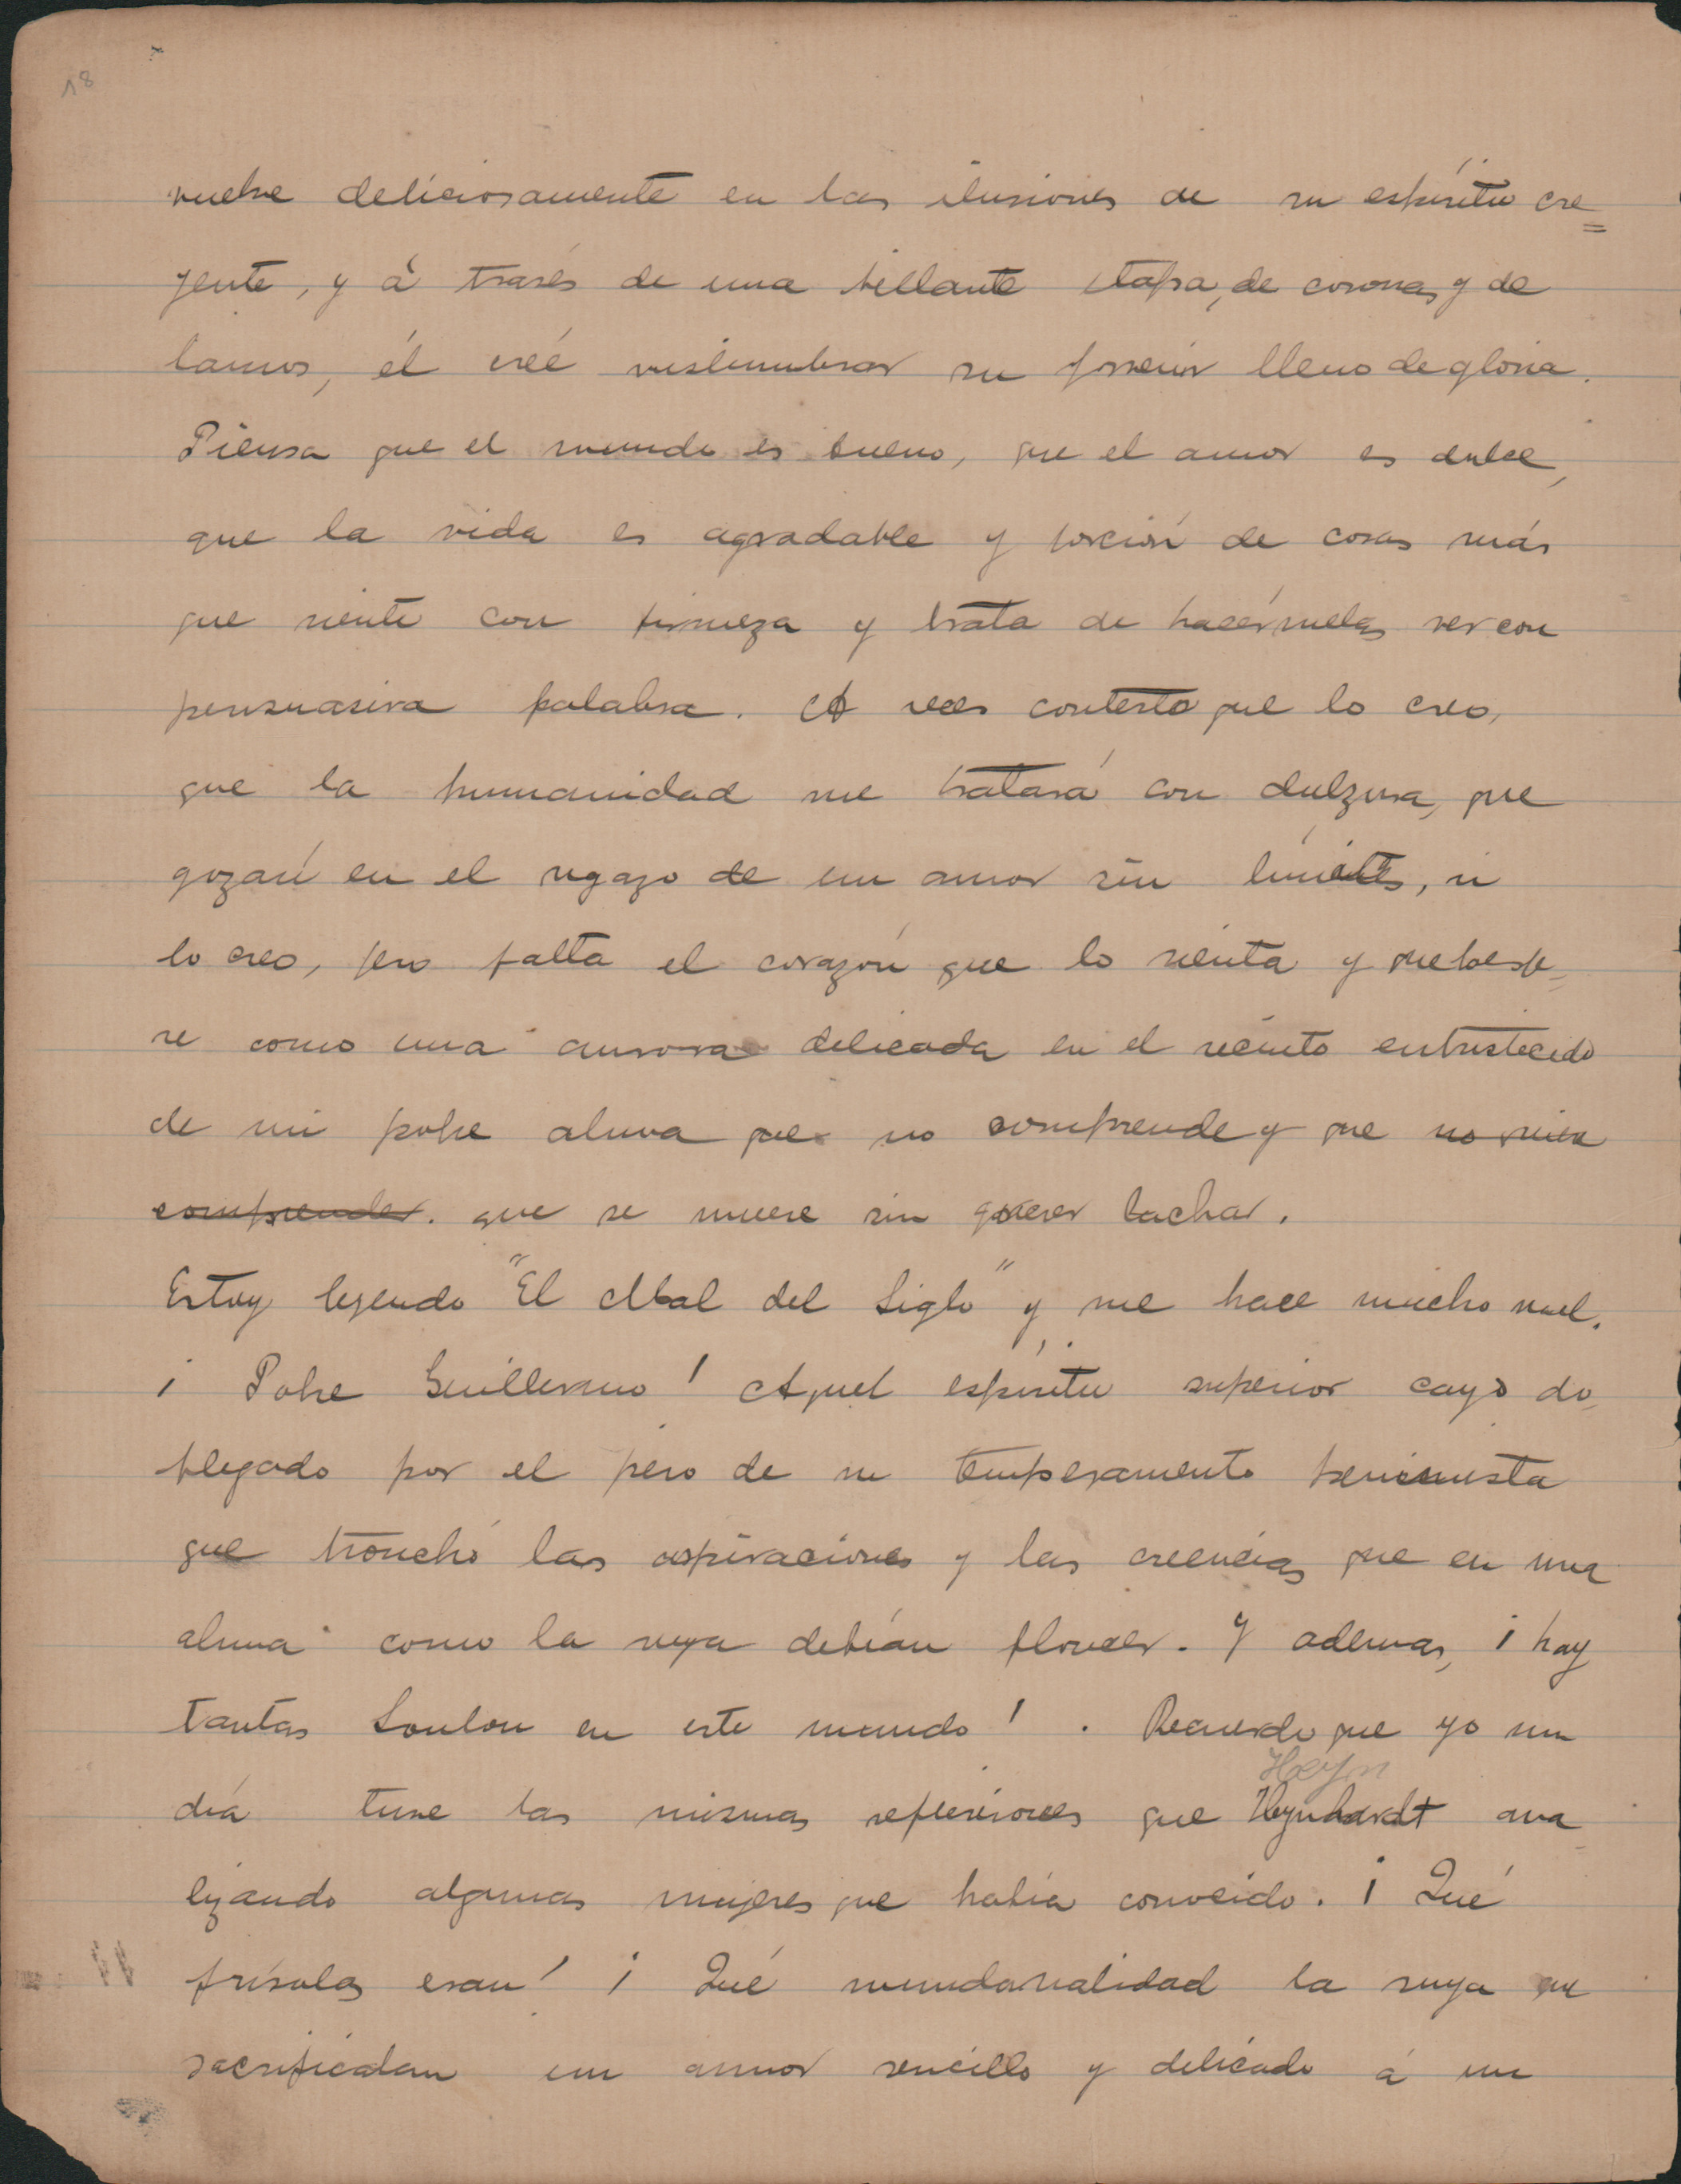 18
vuelve deliciosamente en las ilusiones de su espíritu cre=
yente, y á través de una brillante etapa, de coronas y de
lauros, él creé vislumbrar su porvenir lleno de gloria.
Piensa que el mundo es bueno, que el amor es dulce,
que la vida es agradable y porción de cosas más
que siente con firmeza y trata de hacérmelas ver con
persuasiva palabra. A veces contesto que lo creo,
que la humanidad me tratará con dulzura, que
gozaré en el regazo de un amor sin límites, si
lo creo, pero falta el corazón que lo sienta y
re como una aurora delicada en el recinto entristecido
de mi pobre alma que no comprende y que no quiere
comprender. que se muere sin querer luchar.
Estoy leyendo "El Mal del Siglo" y me hace mucho mal.
¡Pobre Guillermo! Aquel espíritu superior cayó do
blegado por el peso de su temperamento pesimista
que tronchó las aspiraciones y las creencias que en una
alma como la suya debían florecer. Y ademas, ¡hay
tantas Loulou en este mundo!. Recuerdo que yo un
Heyn
día tuve las mismas reflexiones que Heynhardt ana
lizando algunas mujeres que había conocido. ¡Qué
frívolas eran! ¡Qué mundanalidad la suya que
sacrificaban un amor sencillo y delicado á un